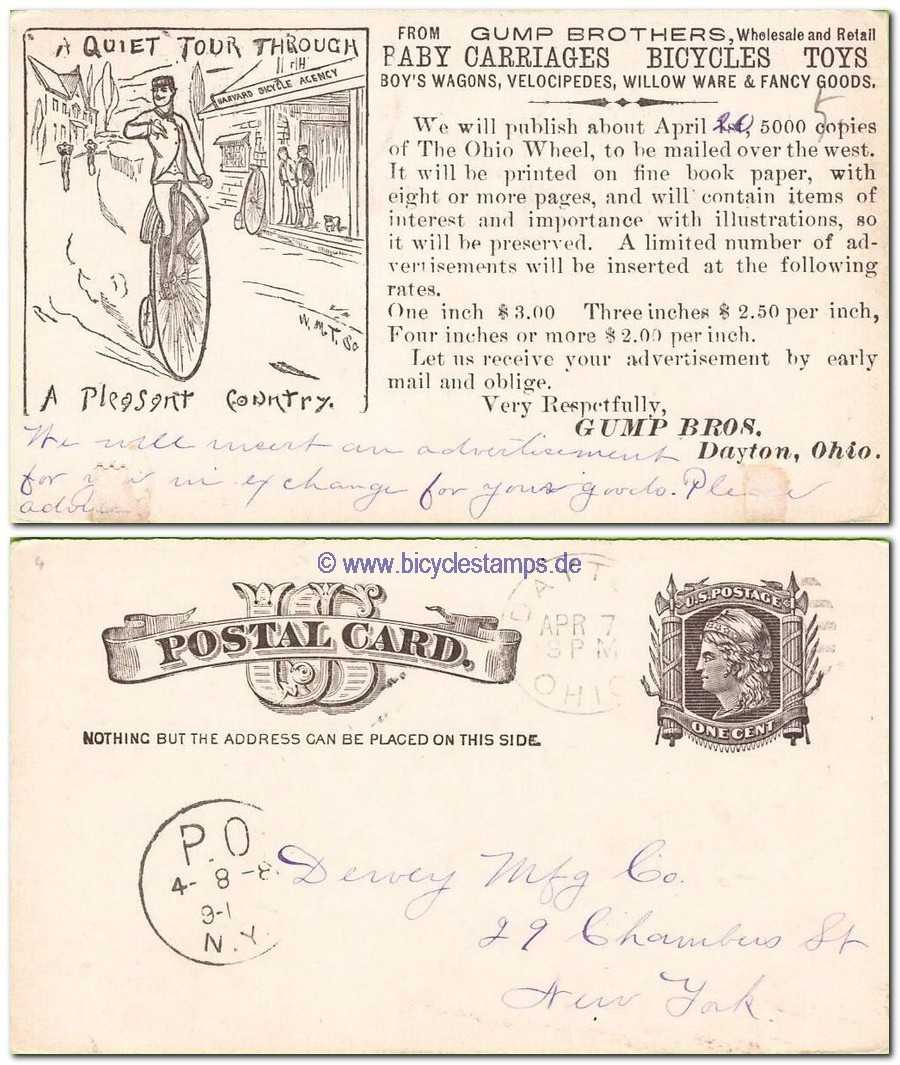 "A QUIET" TOUR THROUGH
HARVARD BICYCLE AGENCY
W.M.T. Co
A PleasAnt Country.
FROM GUMP BROTHERS, Wholesale and Retail
BABY CARRIAGES BICYCLES TOYS
BOY'S WAGONS, VELOCIPEDES, WILLOW WARE & FANCY GOODS.
We will publish about April 20, 5000 copies
of The Ohio Wheel, to be mailed over the west.
It will be printed on fine book paper, with
eight or more pages, and will contain items of
interest and importance with illustrations, so
it will be preserved. A limited number of ad-
vertisements will be inserted at the following
rates.
One inch $3.00 Three inches $2.50 per inch,
Four inches or more $2.00 per inch.
Let us receive your advertisement by early
mail and oblige.
Very Respctfully,
GUMP BROS.
Dayton, Ohio.
We will insert an advertisement
for you in exchange for your goods. Please
advise
© www.bicyclestamps.de
U S
POSTAL CARD.
NOTHING BUT THE ADDRESS CAN BE PLACED ON THIS SIDE.
DAYTO
APR 7
OHIO
U.S. POSTAGE
ONE CENT
P.O
4-8-8
9-1
N.Y.
Dewey Mfg Co.
29 Chambers St
New York.